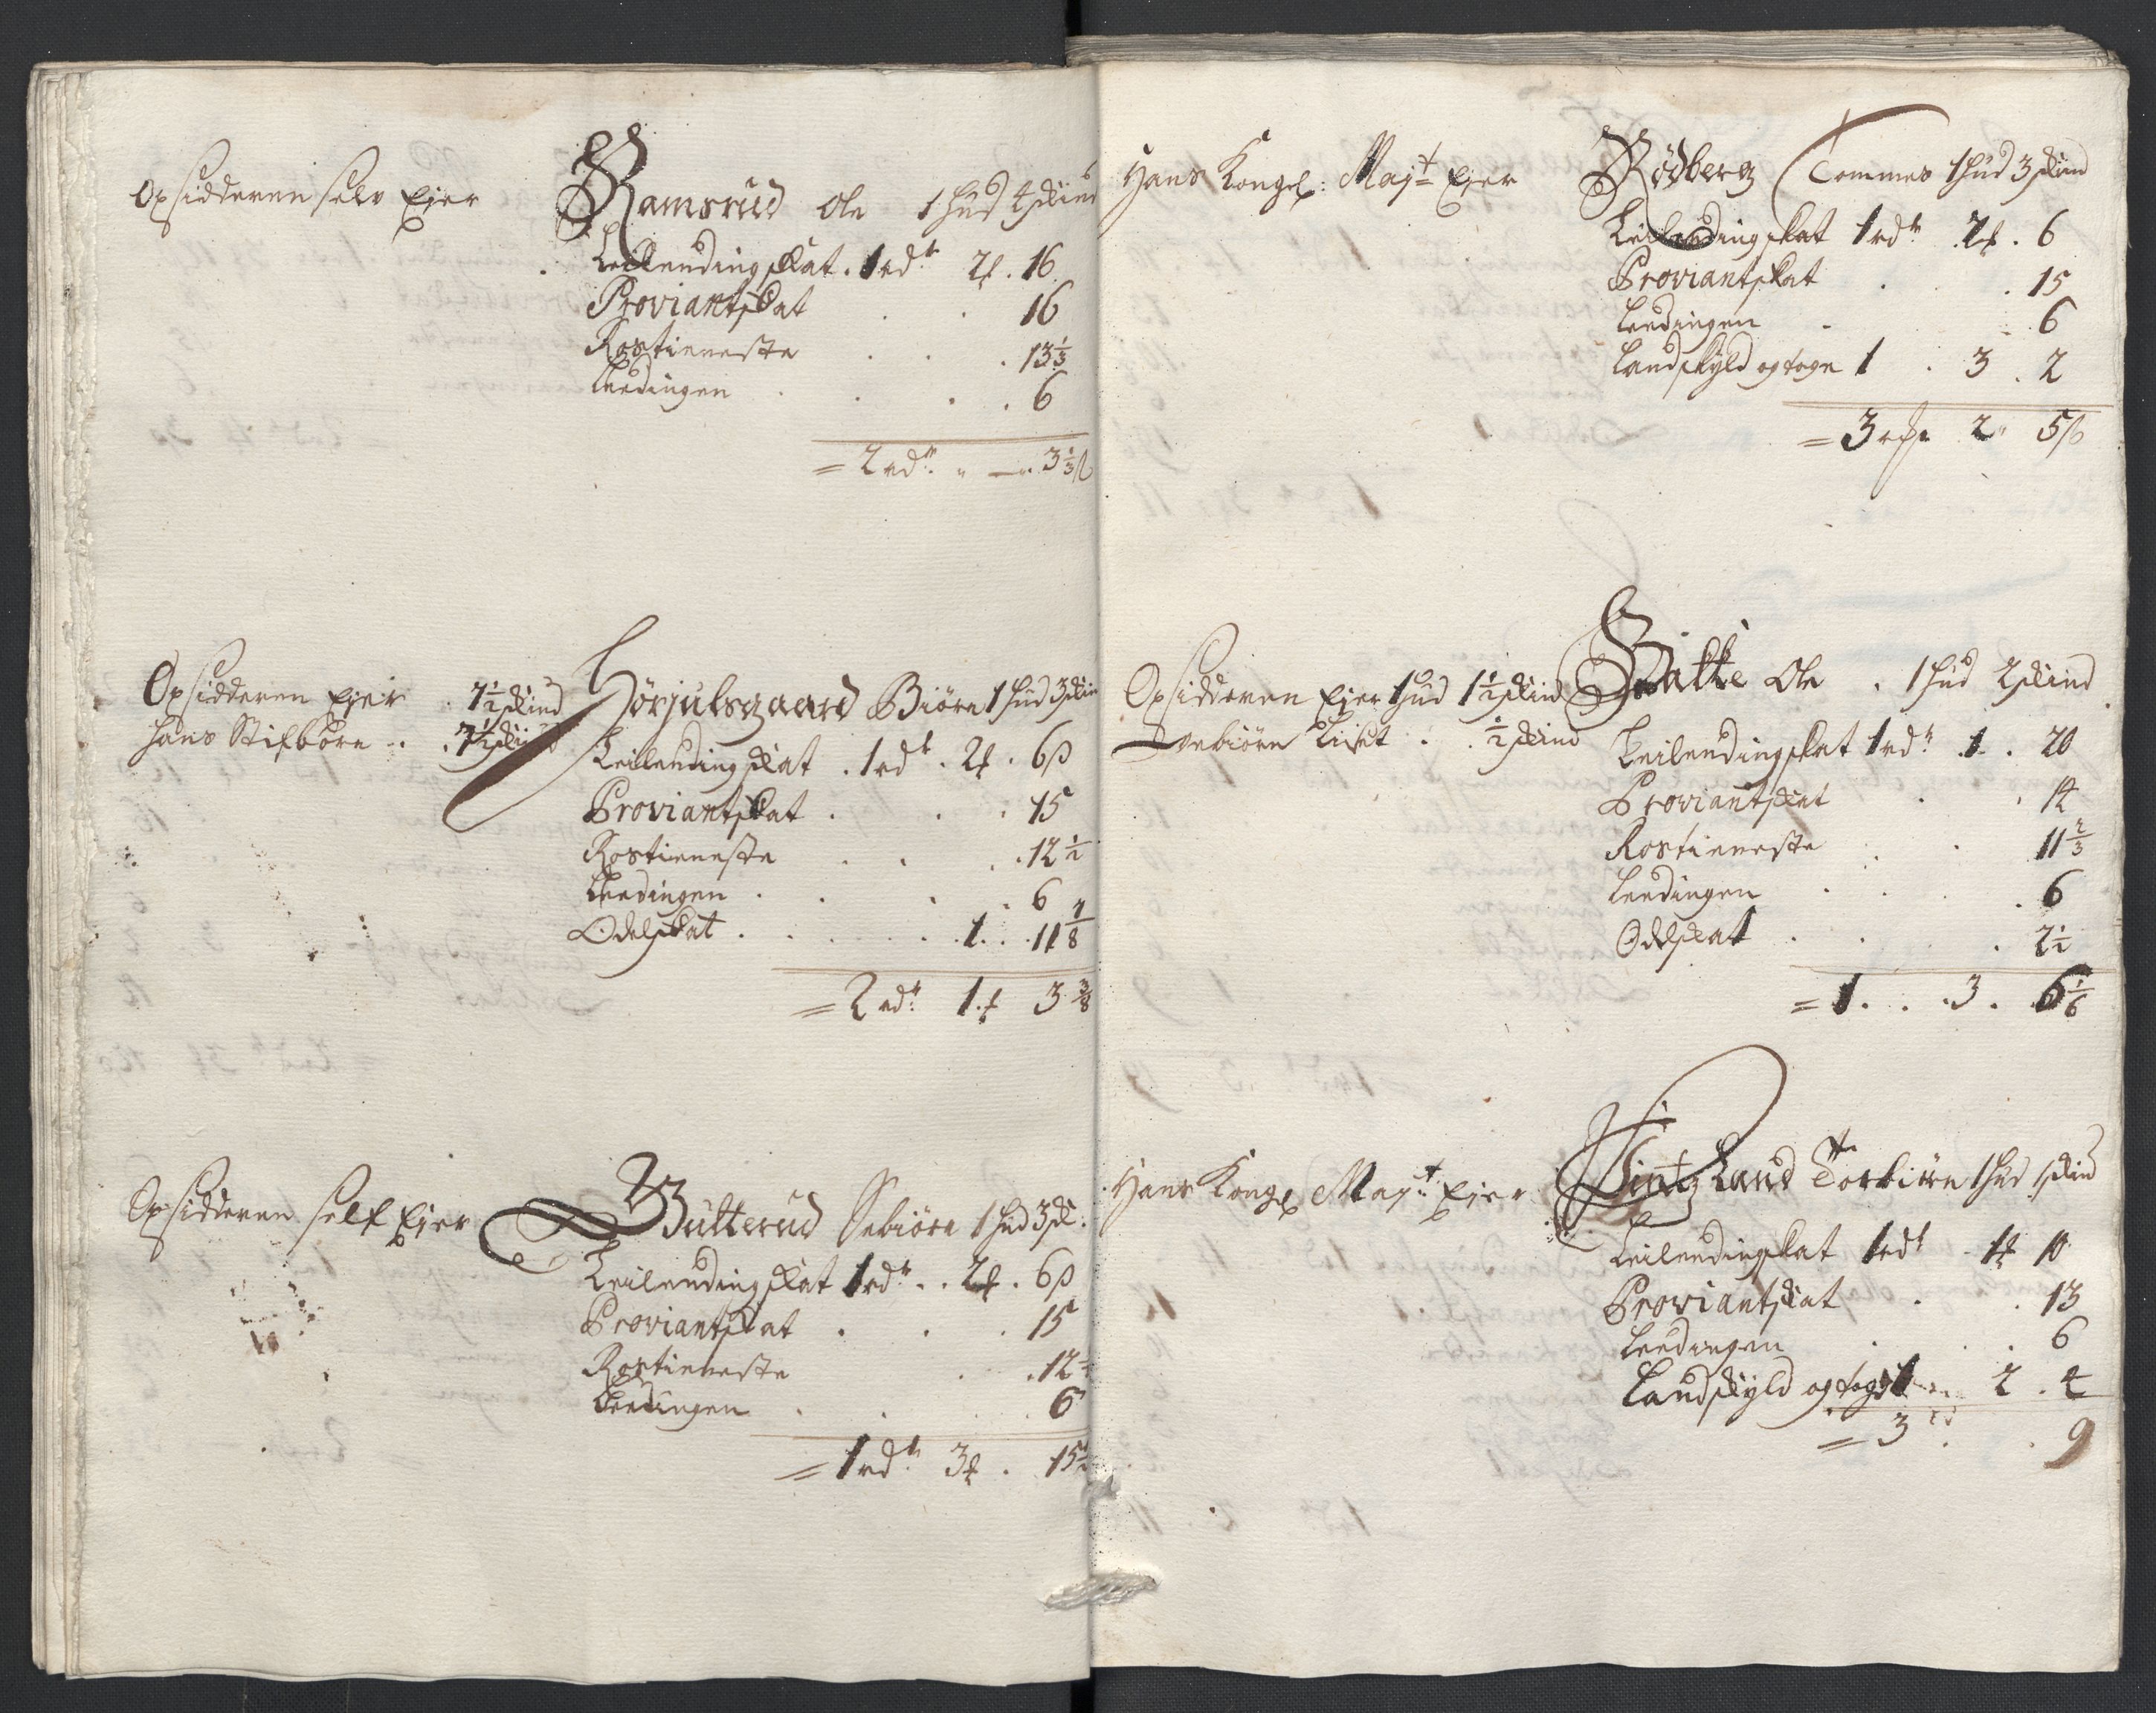 Opsidderen selv Ejer
Ramsrud Ole 1 hud 4 skind
Leilendingskat . 1 rdr 2 ƒ . 16
Proviantskat . . 16
Rostieneste . . . 13 1/3
Leedingen . . . . 6
= 2 rdr: " — " 3 1/3 ß
Opsidderen Ejer . 7 1/2 skind
Hans Stifbörn . . 7 1/2 skind
Hörjulsgaard Biörn 1 hud 3 skin
Leilendingskat . 1 rdr . 2 ƒ . 6 ß
Proviantskat . . . 15
Rostieneste . . . 12 1/2
Leedingen . . . . 6
Odelskat . . . . . . 1 . . 11 7/8
= 2 rdr 1 ƒ 3 3/8
Opsidderen self Ejer
Butterud Sebiörn 1 hud 3 sk:
Leilendingskat 1 rdr . . 2 ƒ . 6 ß
Proviantskat . . . 15
Rostieneste . . 12 1/2
Leedingen . . . 6
= 1 rdr 3 ƒ . 15 1/2
Hans Kongel: Majt Ejer
Rödberg Tommes 1 hud 3 skind
Leilendingskat 1 rdr . 2 ƒ . 6
Proviantskat . . 15
Leedingen . . 6
Landskyld og tage 1 . 3 . 2
= 3 rdr 2 " 5 ß
Opsidderen Ejer 1 hud 1 1/2 skind
Liset . . 1/2 skind
Ole . 1 hud 2 skind
Leilendingskat 1 rdr . 1 . 20
Proviantskat . . 14
Rostieneste . . 11 2/3
Leedingen . . . 6
Odelskat . . . 2 1/2
= 1 . . . 3 . 6 1/6
Hans Kongel Majt: Ejer
Torbiörn 1 hud 1 skind
Leilendingskat 1 rdr . 1 ƒ 10
Proviantskat . . 13
Leedingen . . . 6
Landskyld og tage 1 2 . 4
= 3 . . 9